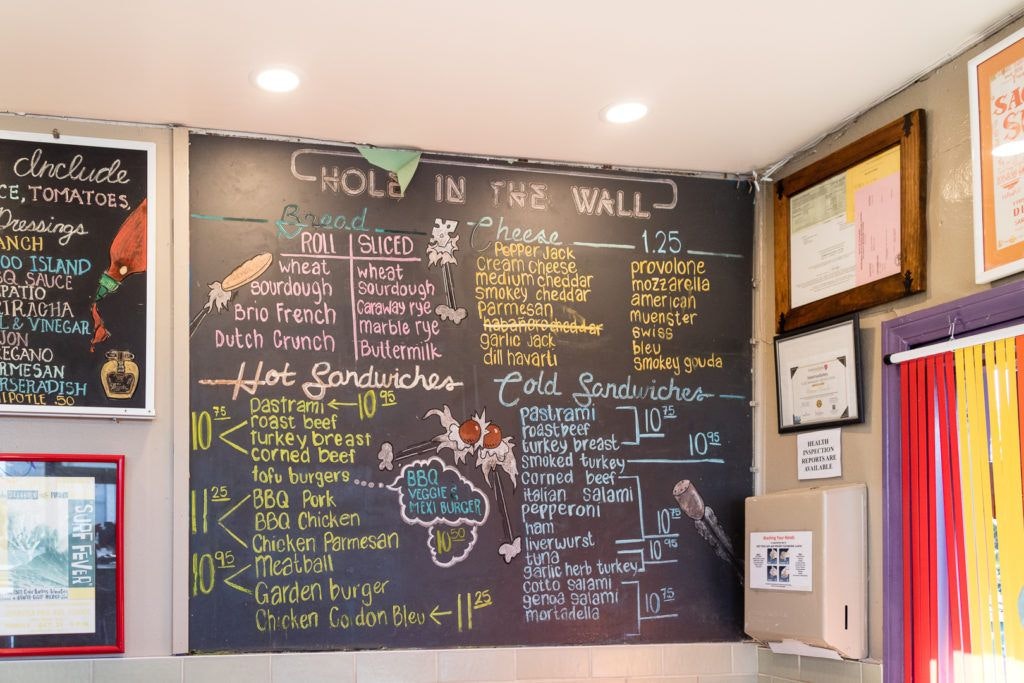 Include
CE, TOMATOES,
Dressings
RANCH
OO ISLAND
BQ SAUCE
PATIO
SRIRACHA
L & VINEGAR
JON
REGANO
ARMESAN
ORSERADISH
IPOTLE .50
SURF FEVER
HOLE IN THE WALL
Bread
ROLL SLICED
wheat wheat
sourdough sourdough
Brio French Caraway rye
Dutch Crunch marble rye
Buttermilk
Cheese 1.25
Pepper Jack
Cream cheese
medium cheddar
smokey cheddar
Parmesan
habañero cheddar
garlic jack
dill havarti
provolone
mozzarella
american
muenster
swiss
bleu
smokey gouda
Hot Sandwiches
Pastrami 10.95
10 75
roast beef
turkey breast
corned beef
tofu burgers
BBQ
VEGGIE &
MEXI BURGER
10.50
11 25
BBQ Pork
BBQ Chicken
Chicken Parmesan
10 95
Meatball
Garden burger
Chicken Cordon Bleu 11 25
Cold Sandwiches
pastrami
roast beef
turkey breast
10 75
smoked turkey
10 95
corned beef
italian salami
pepperoni
ham
10 75
liverwurst
tuna
10 95
garlic herb turkey
cotto salami
genoa salami
mortadella
10 75
HEALTH
INSPECTION
REPORTS ARE
AVAILABLE
Washing Your Hands